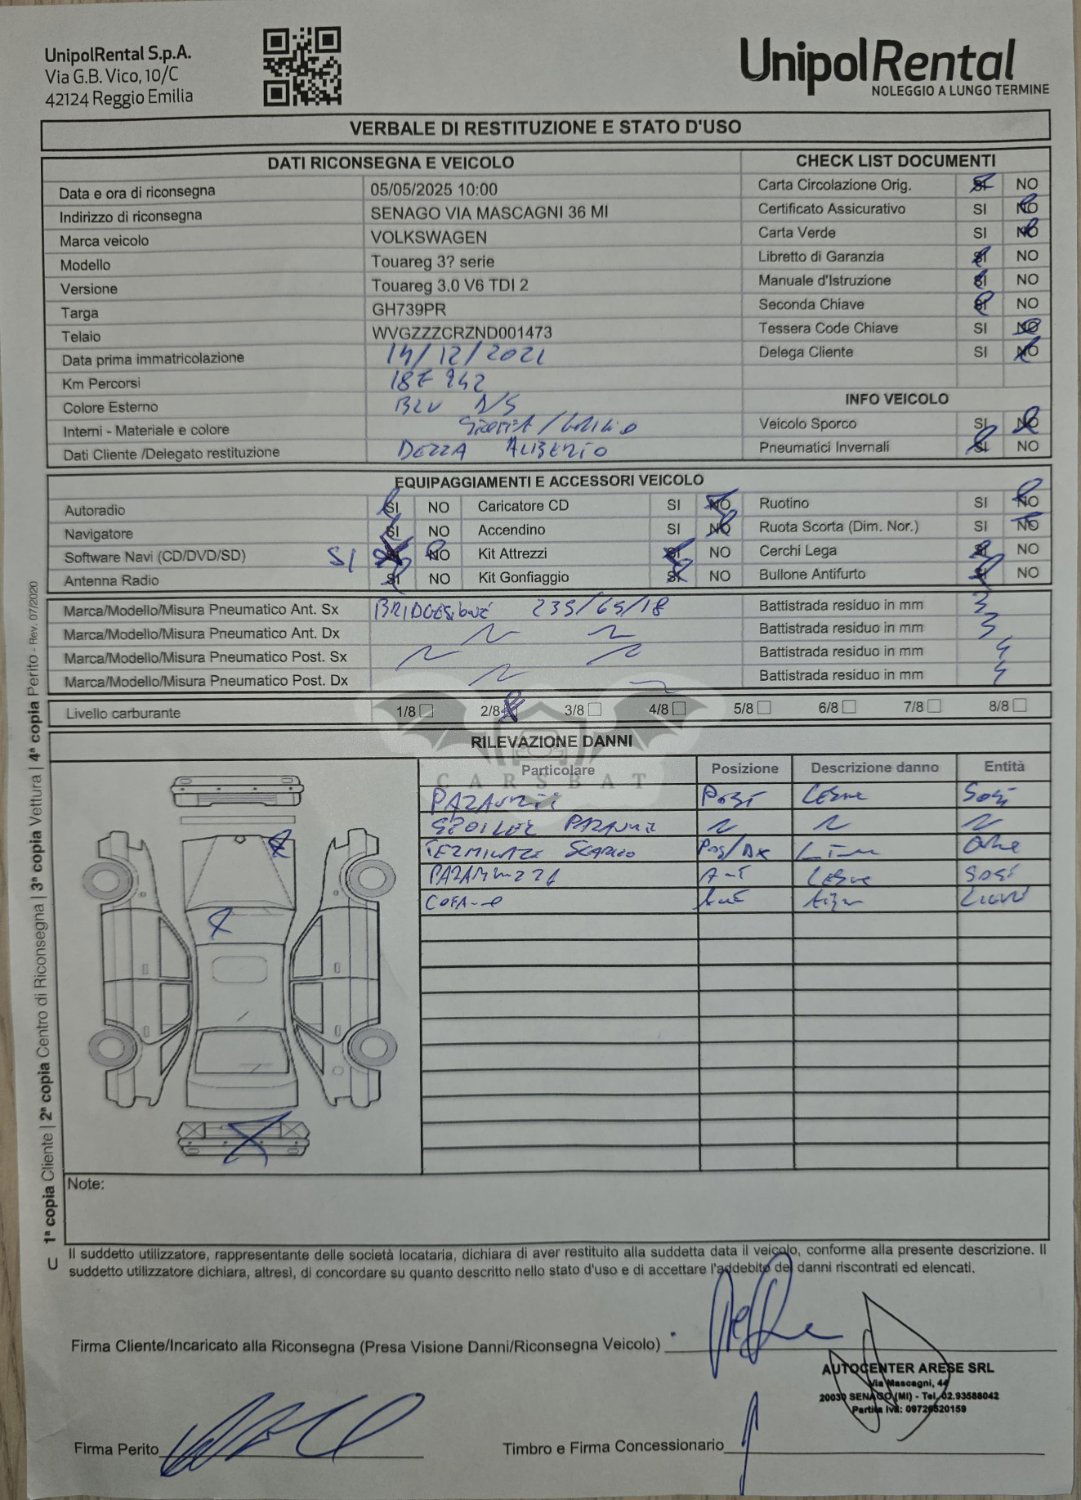 UnipolRental S.p.A.
Via G.B. Vico, 10/C
42124 Reggio Emilia
UnipolRental
NOLEGGIO A LUNGO TERMINE
VERBALE DI RESTITUZIONE E STATO D'USO
DATI RICONSEGNA E VEICOLO
Data e ora di riconsegna 05/05/2025 10:00
Indirizzo di riconsegna SENAGO VIA MASCAGNI 36 MI
Marca veicolo VOLKSWAGEN
Modello Touareg 3? serie
Versione Touareg 3.0 V6 TDI 2
Targa GH739PR
Telaio WVGZZZCRZND001473
Data prima immatricolazione 14/12/2021
Km Percorsi
Colore Esterno BLU
Interni - Materiale e colore
Dati Cliente /Delegato restituzione DEZZA
CHECK LIST DOCUMENTI
Carta Circolazione Orig. SI NO
Certificato Assicurativo SI NO
Carta Verde SI NO
Libretto di Garanzia SI NO
Manuale d'Istruzione SI NO
Seconda Chiave SI NO
Tessera Code Chiave SI NO
Delega Cliente SI NO
INFO VEICOLO
Veicolo Sporco SI NO
Pneumatici Invernali SI NO
EQUIPAGGIAMENTI E ACCESSORI VEICOLO
Autoradio SI NO Caricatore CD SI NO Ruotino SI NO
Navigatore SI NO Accendino SI NO Ruota Scorta (Dim. Nor.) SI NO
Software Navi (CD/DVD/SD) SI SI NO Kit Attrezzi SI NO Cerchi Lega SI NO
Antenna Radio SI NO Kit Gonfiaggio SI NO Bullone Antifurto SI NO
Marca/Modello/Misura Pneumatico Ant. Sx BRIDGESTONE 235/65/18 Battistrada residuo in mm 3
Marca/Modello/Misura Pneumatico Ant. Dx Battistrada residuo in mm 3
Marca/Modello/Misura Pneumatico Post. Sx Battistrada residuo in mm 4
Marca/Modello/Misura Pneumatico Post. Dx Battistrada residuo in mm 4
Livello carburante 1/8 2/8 3/8 4/8 5/8 6/8 7/8 8/8
CARSBAT
RILEVAZIONE DANNI
Particolare Posizione Descrizione danno Entità
PARAURTI POST
SPOILER PARAURTI
TERMINALE SCARICO POS/DX
PARAURTI ANT
COFANO ANT
Note:
1ª copia Cliente | 2ª copia Centro di Riconsegna | 3ª copia Vettura | 4ª copia Perito - Rev. 07/2020
Il suddetto utilizzatore, rappresentante delle società locataria, dichiara di aver restituito alla suddetta data il veicolo, conforme alla presente descrizione. Il
suddetto utilizzatore dichiara, altresì, di concordare su quanto descritto nello stato d'uso e di accettare l'addebito dei danni riscontrati ed elencati.
Firma Cliente/Incaricato alla Riconsegna (Presa Visione Danni/Riconsegna Veicolo)
AUTOCENTER ARESE SRL
Via Mascagni, 44
20030 SENAGO (MI) - Tel. 02.93588042
Partita Iva: 09726520159
Firma Perito
Timbro e Firma Concessionario